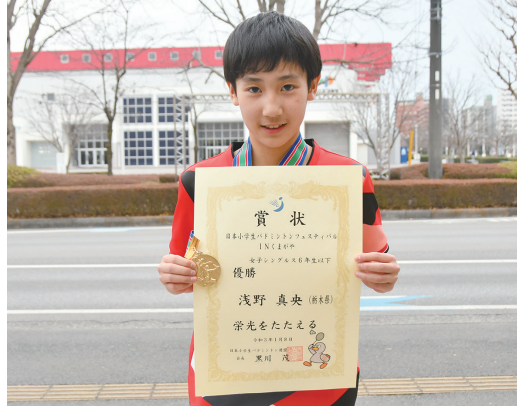 賞状
日本小学生バドミントンフェスティバル
INくまがや
女子シングルス6年生以下
優勝
浅野 真央 (栃木県)
栄光をたたえる
日本小学生バドミントン連盟
会長 黒川 茂